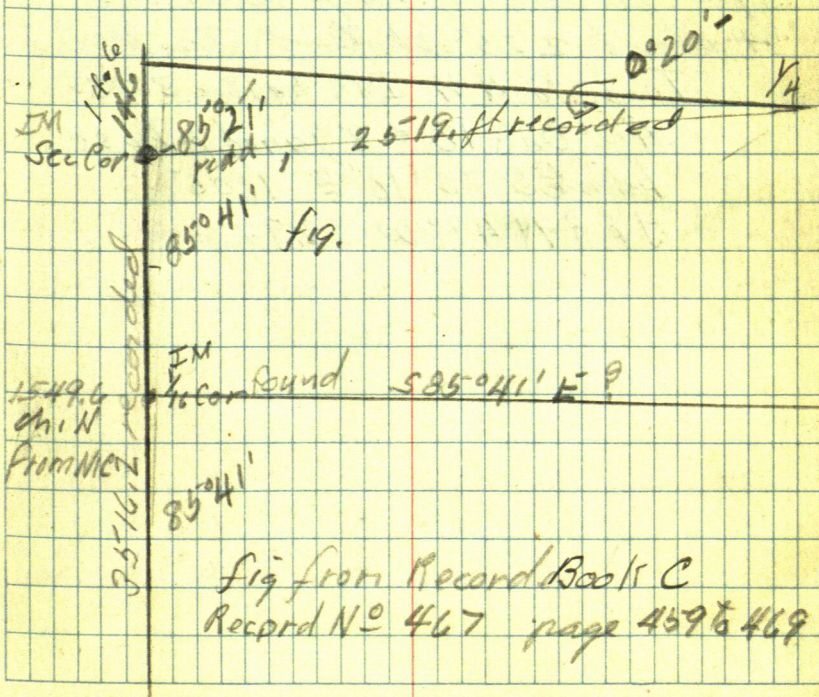 14.6
14.6
0°20'
1/4
IM
Sec Cor
85°21'
2519. ft recorded
85°41'
fig.
IM
1/16 Cor found S85°41' E ?
1549.6
ch. N
from MC
3516.2 recorded
85°41'
fig from Record Book C
Record Nº 467 page 459 to 469